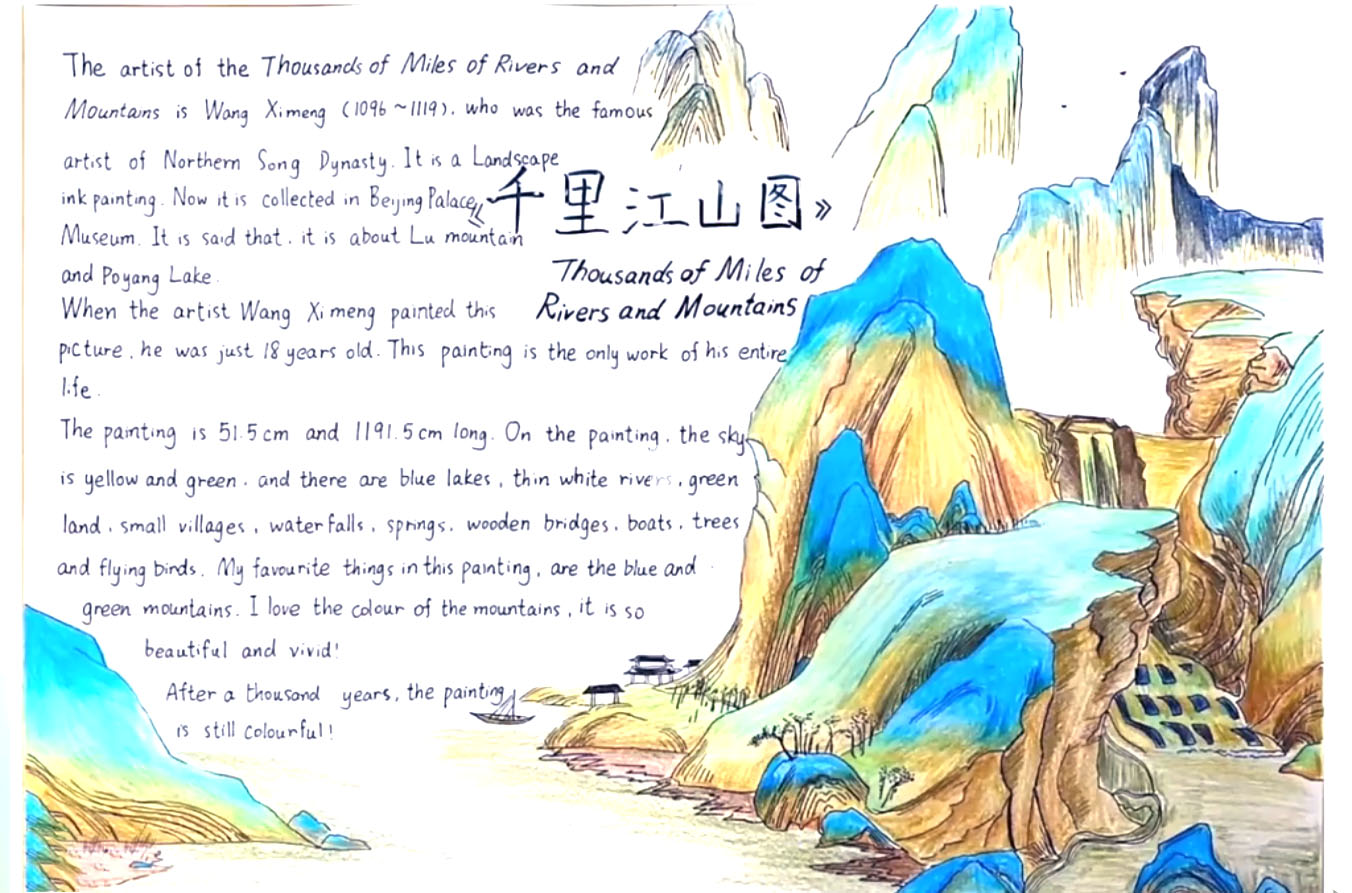 The artist of the Thousands of Miles of Rivers and
Mountains is Wang Ximeng (1096~1119). who was the famous
artist of Northern Song Dynasty. It is a Landscape
ink painting. Now it is collected in Beijing Palace
Museum. It is said that. it is about Lu mountain
and Poyang Lake.
《千里江山图》
Thousands of Miles of
Rivers and Mountains
When the artist Wang Ximeng painted this
picture. he was just 18 years old. This painting is the only work of his entire
life.
The painting is 51.5cm and 1191.5cm long. On the painting. the sky
is yellow and green. and there are blue lakes, thin white rivers, green
land. small villages, waterfalls, springs. wooden bridges, boats. trees
and flying birds. My favourite things in this painting, are the blue and
green mountains. I love the colour of the mountains, it is so
beautiful and vivid!
After a thousand years, the painting
is still colourful!